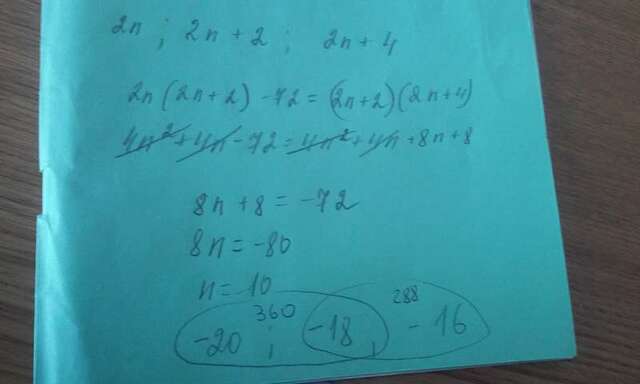 2n ; 2n + 2 ; 2n + 4
2n (2n+2) - 72 = (2n+2)(2n+4)
4n² + 4n - 72 = 4n² + 4n + 8n + 8
8n + 8 = -72
8n = -80
n = 10
360 288
-20 ; -18 , -16